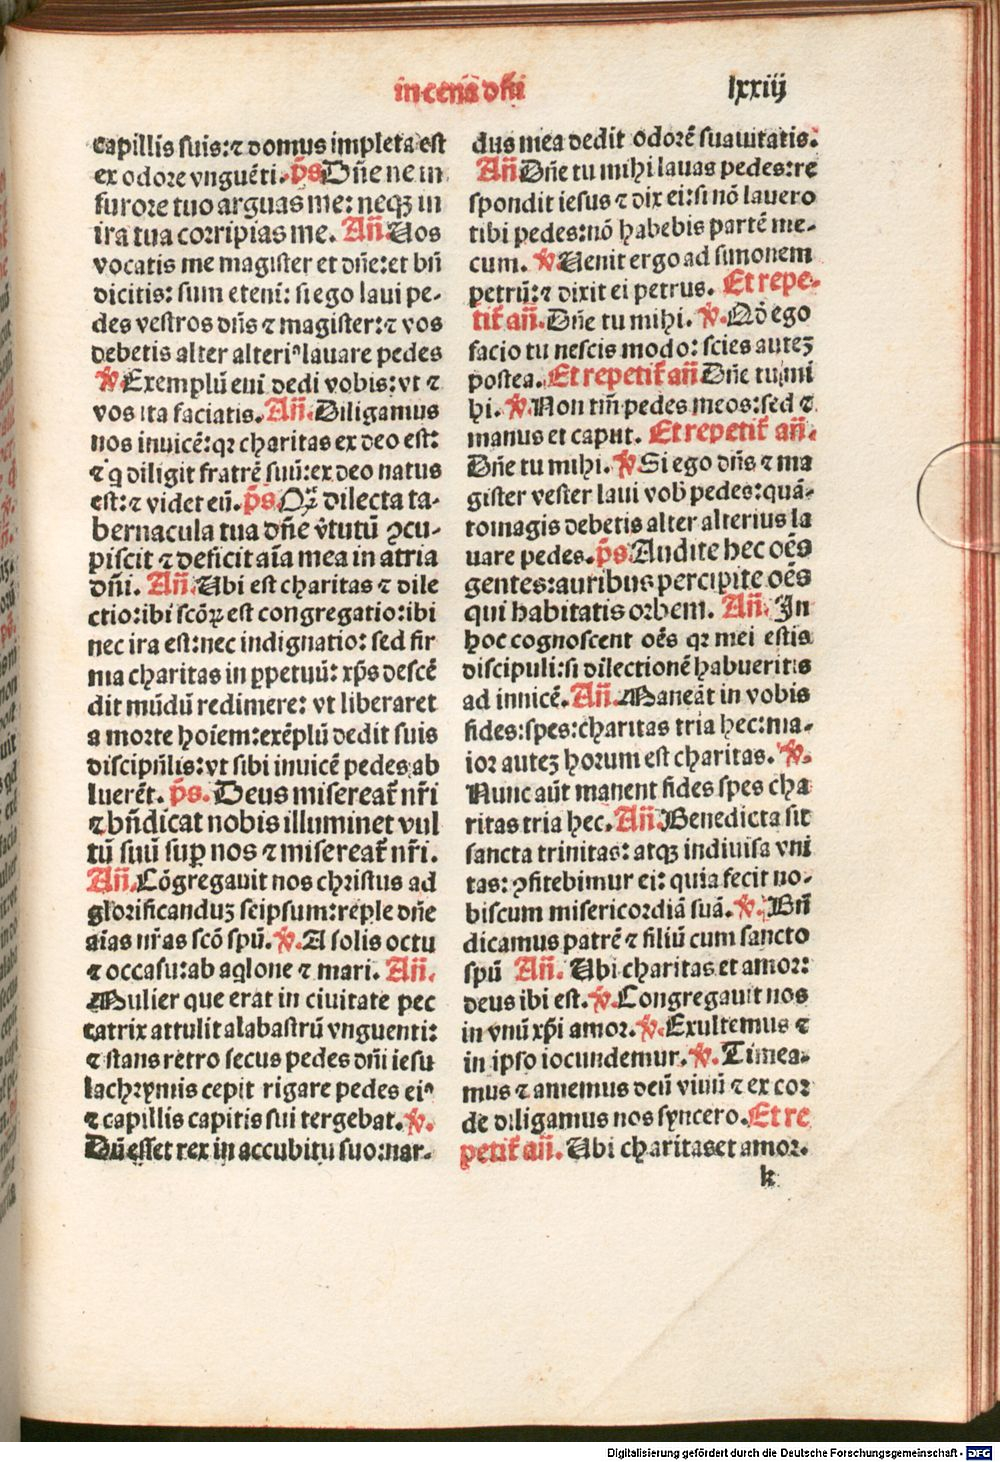 in cena dn̄i
lxxiij
capillis suis:⁊ domus impleta est
ex odore vnguēti. p̄s Dn̄e ne in
furore tuo arguas me: neqꝫ in
ira tua corripias me. An̄. Uos
vocatis me magister et dn̄e:et bn̄
dicitis: sum eteni: si ego laui pe-
des vestros dn̄s ⁊ magister:⁊ vos
debetis alter alteriꝰ lauare pedes
℣ Exemplū eni dedi vobis:vt ⁊
vos ita faciatis. An̄. Diligamus
nos inuicē:qꝛ charitas ex deo est:
⁊ q diligit fratrē suū:ex deo natus
est:⁊ videt eū. p̄s. Qꝫ dilecta ta-
bernacula tua dn̄e v̄tutū ꝯcu-
piscit ⁊ deficit aīa mea in atria
dn̄i. An̄. Ubi est charitas ⁊ dile
ctio:ibi scōꝝ est congregatio:ibi
nec ira est:nec indignatio: sed fir
ma charitas in ꝑpetuū: xp̄s descē
dit mūdū redimere: vt liberaret
a morte hoīem:exēplū dedit suis
discipulis:vt sibi inuicē pedes ab
luerēt. p̄s. Deus misereat̄ nr̄i
⁊ bn̄dicat nobis illuminet vul
tū suū suꝑ nos ⁊ misereat̄ nr̄i.
An̄. Cōgregauit nos christus ad
glorificanduꝫ seipsum:reple dn̄e
aīas nr̄as scō spū. ℣. A solis octu
⁊ occasu:ab aqlone ⁊ mari. An̄.
Mulier que erat in ciuitate pec
catrix attulit alabastrū vnguenti:
⁊ stans retro secus pedes dn̄i iesu
lachrymis cepit rigare pedes eiꝰ
⁊ capillis capitis sui tergebat. ℣.
Dū esset rex in accubitu suo:nar-
dus mea dedit odorē suauitatis.
An̄ Dn̄e tu mihi lauas pedes:re
spondit iesus ⁊ dix ei:si nō lauero
tibi pedes:nō habebis partē me-
cum. ℣. Uenit ergo ad simonem
petrū:⁊ dixit ei petrus. Et repe-
tit̄ an̄. Dn̄e tu mihi. ℣. Qd̄ ego
facio tu nescis modo: scies auteꝫ
postea. Et repetit̄ an̄ Dn̄e tu mi
hi. ℣. Non tm̄ pedes meos:sed ⁊
manus et caput. Et repetit̄ an̄.
Dn̄e tu mihi. ℣ Si ego dn̄s ⁊ ma
gister vester laui vob̄ pedes:quā-
tomagis debetis alter alterius la
uare pedes. p̄s. Audite hec oēs
gentes:auribus percipite oēs
qui habitatis orbem. An̄. In
hoc cognoscent oēs qꝛ mei estis
discipuli:si dilectionē habueritis
ad inuicē. An̄. Maneāt in vobis
fides:spes:charitas tria hec:ma-
ior auteꝫ horum est charitas. ℣.
Nunc aūt manent fides spes cha
ritas tria hec. An̄. Benedicta sit
sancta trinitas: atqꝫ indiuisa vni
tas: ꝯfitebimur ei: quia fecit no-
biscum misericordiā suā. ℣. Bn̄
dicamus patrē ⁊ filiū cum sancto
spū An̄. Ubi charitas et amor:
deus ibi est. ℣. Congregauit nos
in vnū xp̄i amor. ℣. Exultemus ⁊
in ipso iocundemur. ℣. Timea-
mus ⁊ amemus deū viuū ⁊ ex cor
de diligamus nos syncero. Et re
petit̄ an̄. Ubi charitas et amor.
k
Digitalisierung gefördert durch die Deutsche Forschungsgemeinschaft - DFG